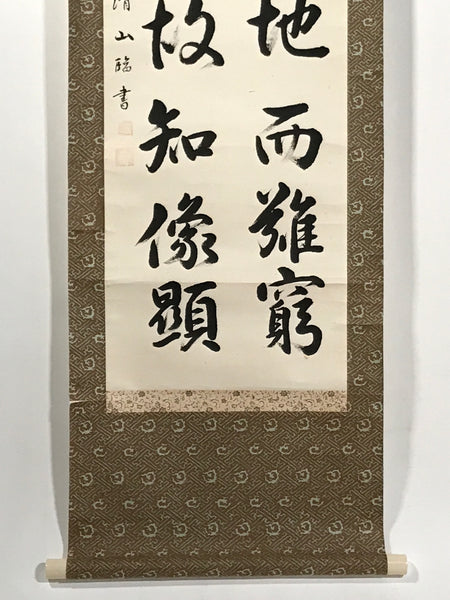 地而難窮
故知像顯
山臨書